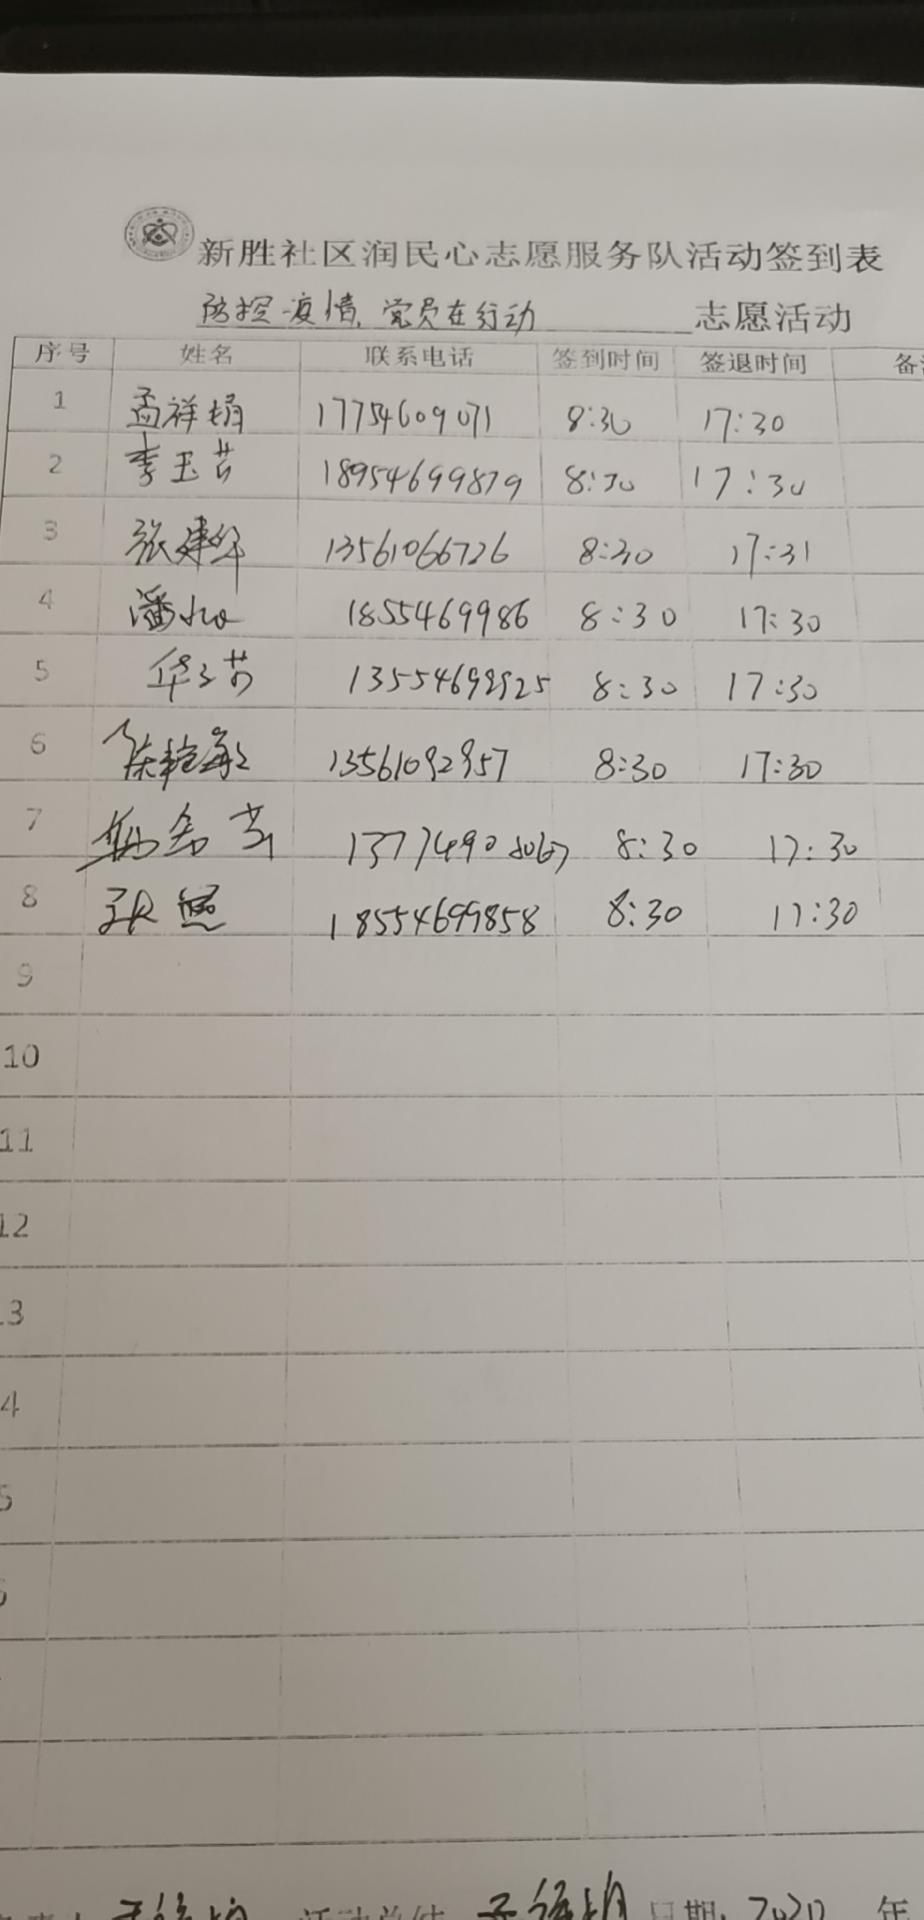 新胜社区润民心志愿服务队活动签到表
防控疫情，党员在行动 志愿活动
序号 姓名 联系电话 签到时间 签退时间 备
1 孟祥娟 17754609071 8:30 17:30
2 李玉芳 18954699879 8:30 17:30
3 张建华 13561066726 8:30 17:31
4 潘 1855469986 8:30 17:30
5 8:30 17:30
6 13561092957 8:30 17:30
7 8:30 17:30
8 18554699858 8:30 17:30
9
10
11
12
3
4
5
活动总结 孟祥娟 日期: 2020 年